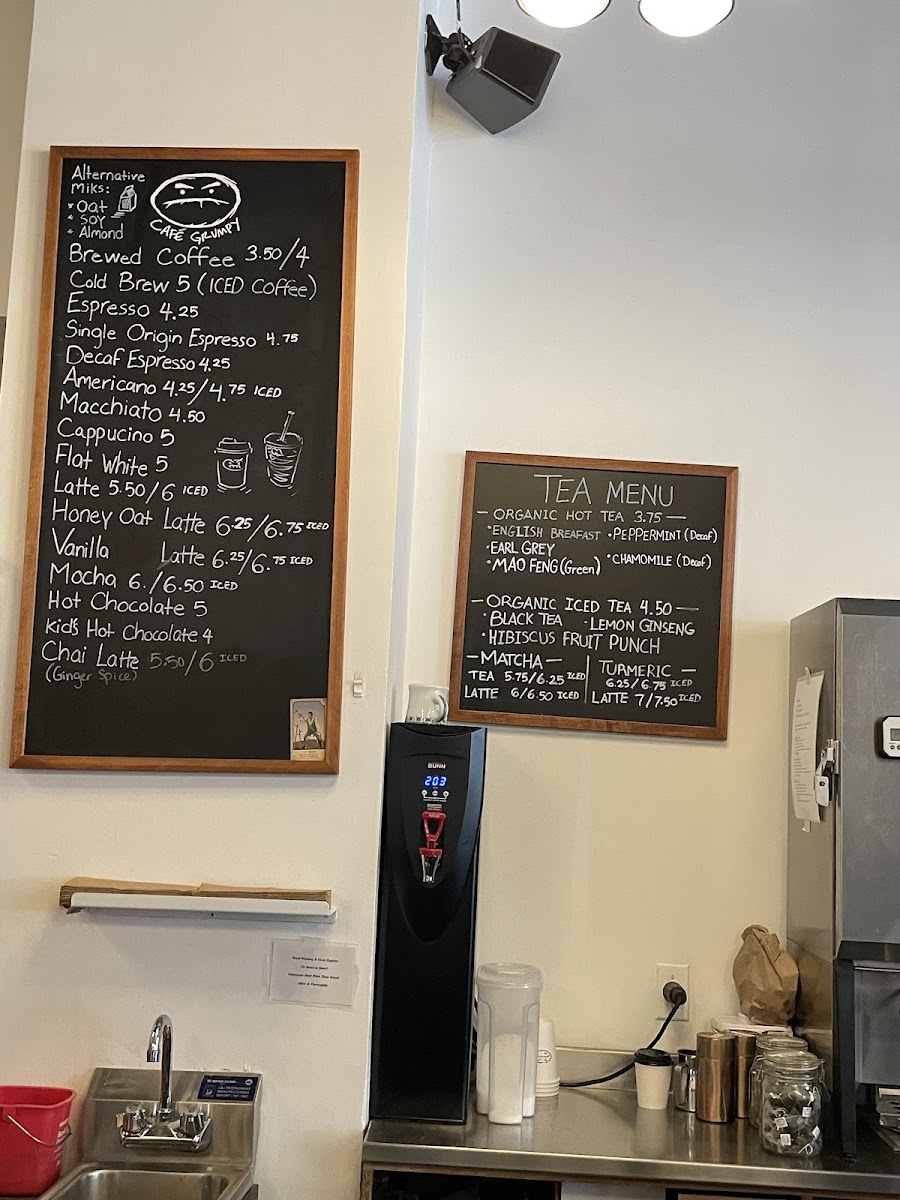 Alternative
Miks:
* Oat
* SOY
* Almond
CAFÉ GRUMPY
Brewed Coffee 3.50/4
Cold Brew 5 (ICED Coffee)
Espresso 4.25
Single Origin Espresso 4.75
Decaf Espresso 4.25
Americano 4.25/4.75 ICED
Macchiato 4.50
Cappucino 5
Flat White 5
Latte 5.50/6 ICED
Honey Oat Latte 6.25/6.75 ICED
Vanilla Latte 6.25/6.75 ICED
Mocha 6./6.50 ICED
Hot Chocolate 5
Kid's Hot Chocolate 4
Chai Latte 5.50/6 ICED
(Ginger Spice)
TEA MENU
— ORGANIC HOT TEA 3.75 —
• ENGLISH BREAKFAST • PEPPERMINT (Decaf)
• EARL GREY
• CHAMOMILE (Decaf)
• MAO FENG (Green)
— ORGANIC ICED TEA 4.50 —
• BLACK TEA • LEMON GINSENG
• HIBISCUS FRUIT PUNCH
— MATCHA —
TEA 5.75/6.25 ICED
LATTE 6/6.50 ICED
TURMERIC —
6.25/6.75 ICED
LATTE 7/7.50 ICED
BUNN
203